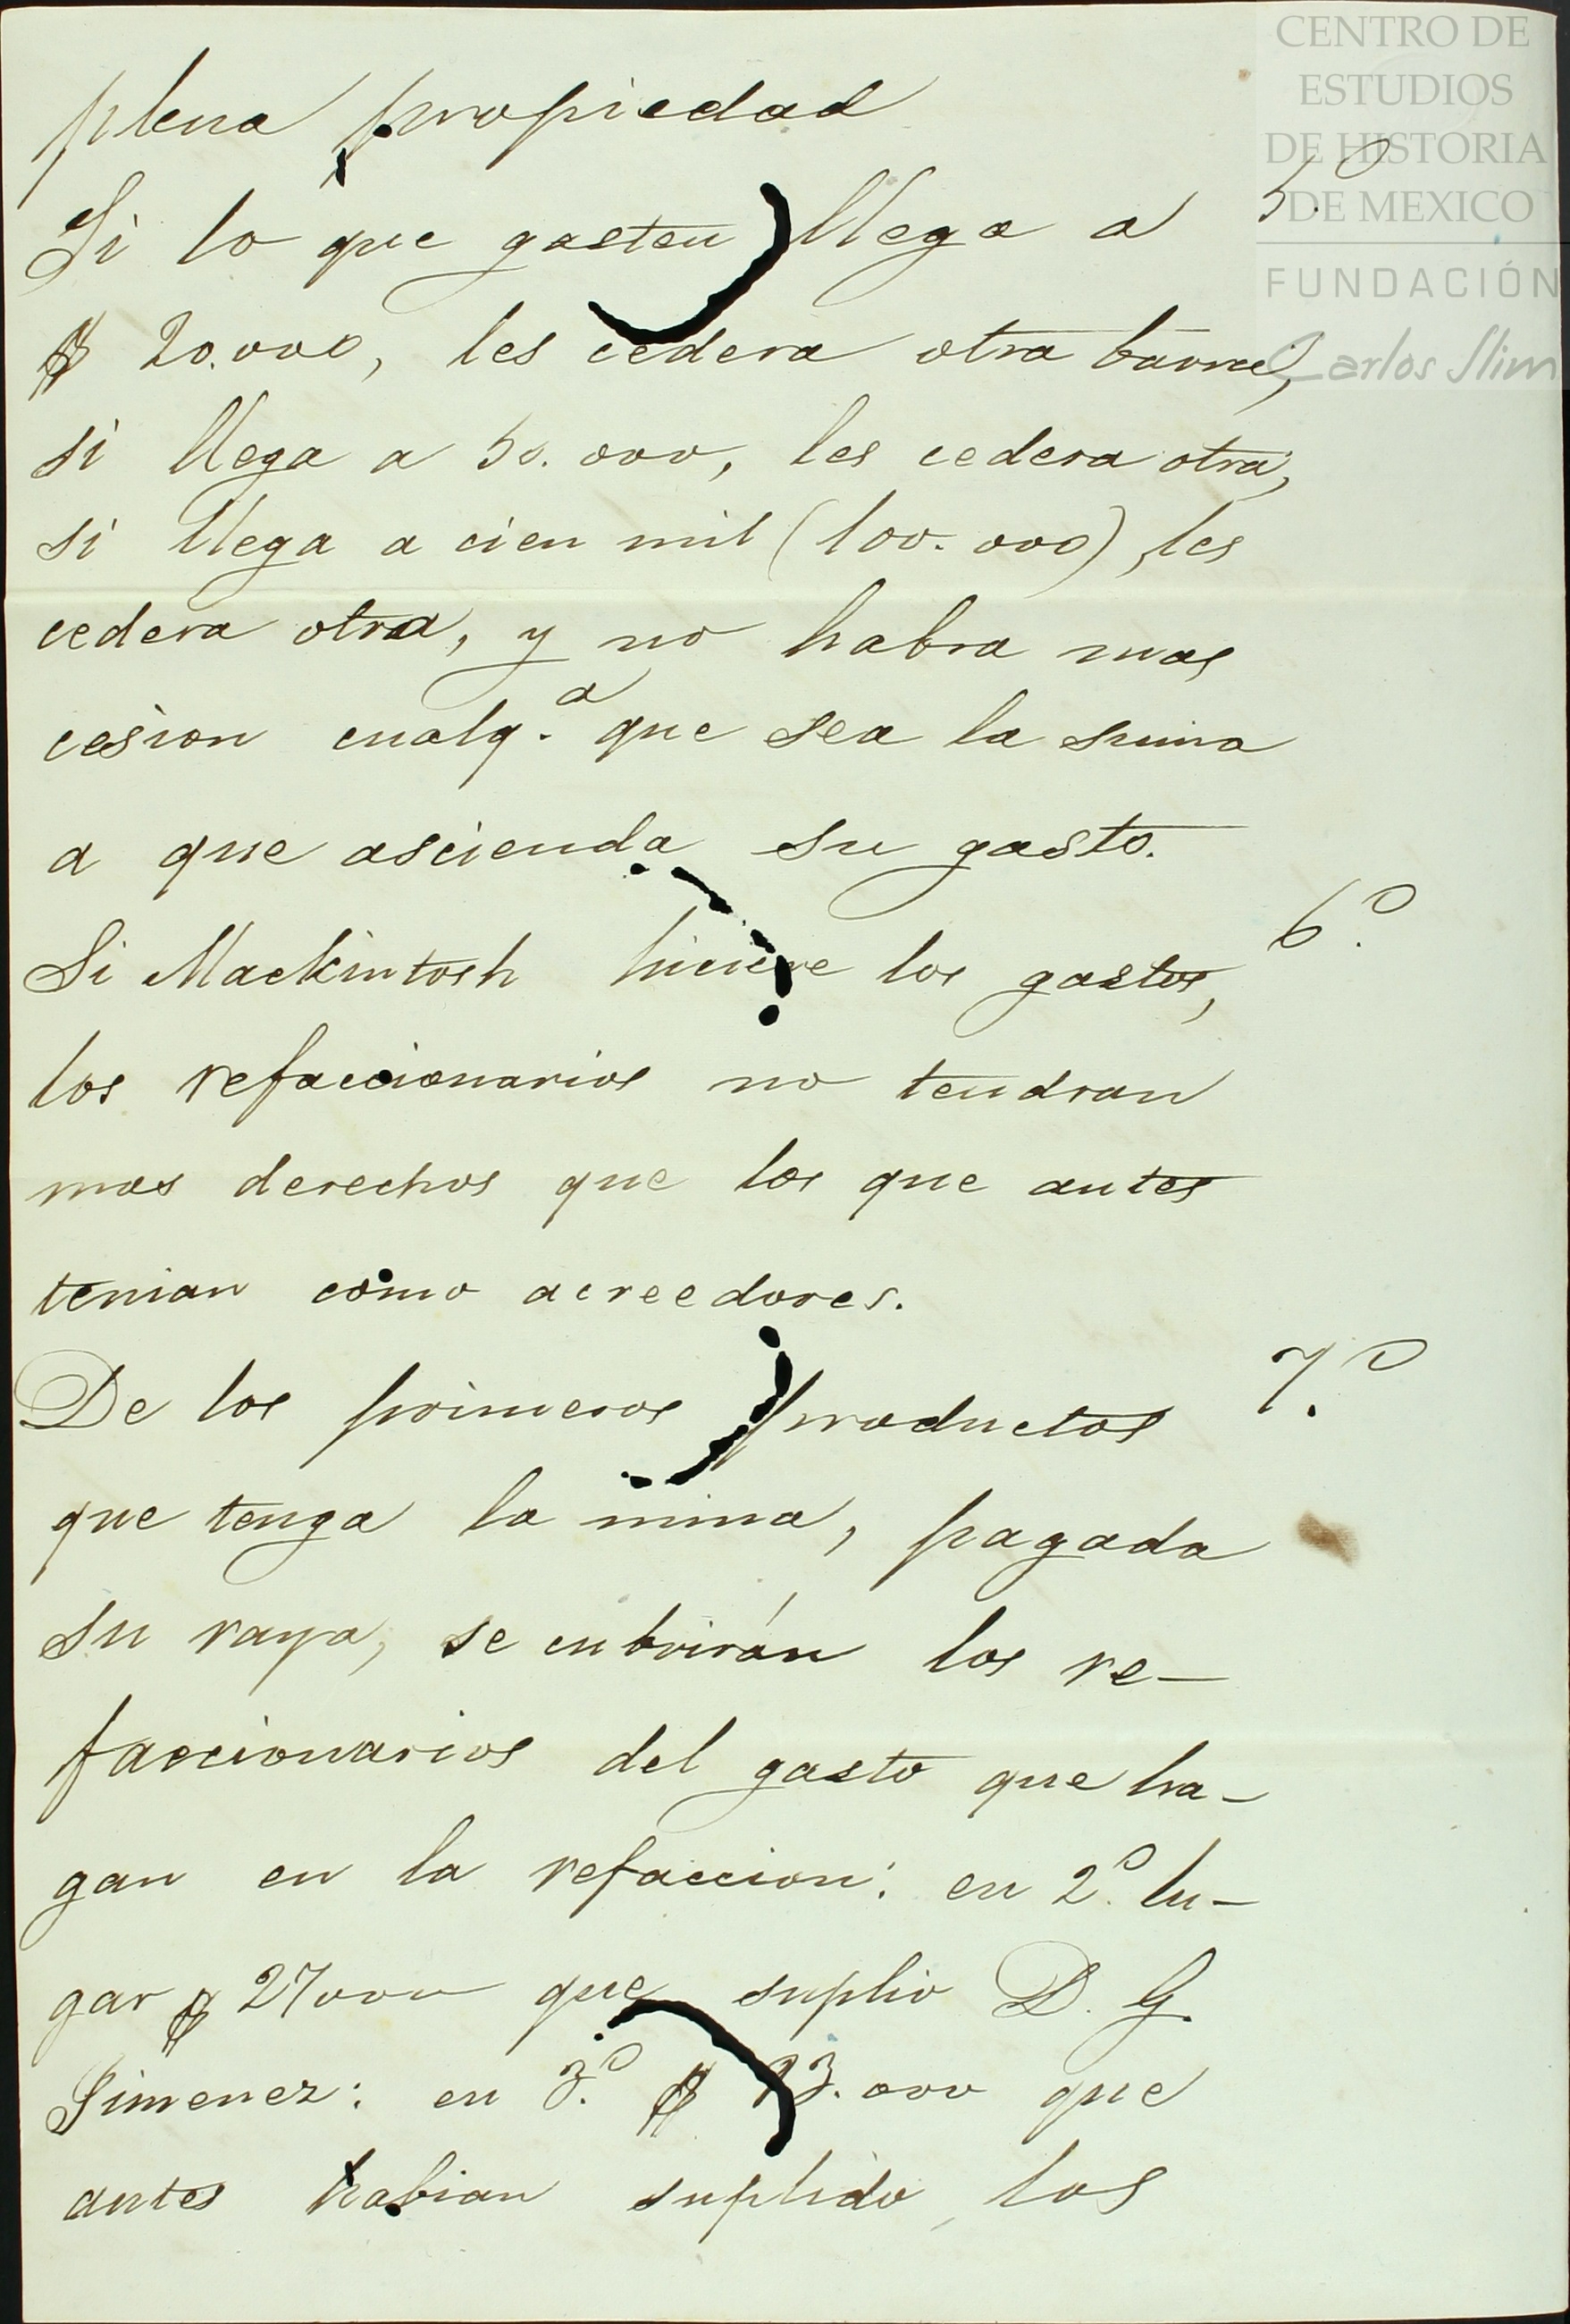 CENTRO DE
ESTUDIOS
DE HISTORIA
DE MEXICO
FUNDACIÓN
Carlos Slim
plena propiedad
Si lo que gasten llega a 5.º
$ 20.000, les cedera otra barra,
si llega a 50.000, les cedera otra,
si llega a cien mil (100.000), les
cedera otra, y no habra mas
cesion cualq.ª que sea la suma
a que ascienda su gasto.
Si Mackintosh hiciere los gastos, 6.º
los refaccionarios no tendran
mas derechos que los que antes
tenian como acreedores.
De los primeros productos 7.º
que tenga la mina, pagada
su raya, se cubrirán los re-
faccionarios del gasto que ha-
gan en la refaccion: en 2.º lu-
gar $ 27000 que suplio D. G.
Jimenez: en 3.º $ 23.000 que
antes habian suplido los